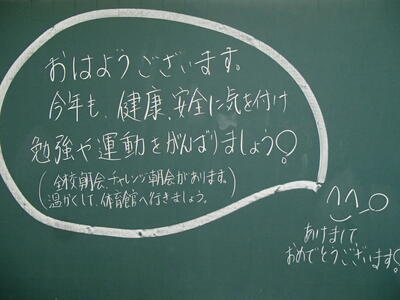 おはようございます。
今年も、健康、安全に気を付け
勉強や運動をがんばりましょう!
(全校朝会、チャレンジ朝会があります。
温かくして、体育館へ行きましょう。)
あけまして、
おめでとうございます!